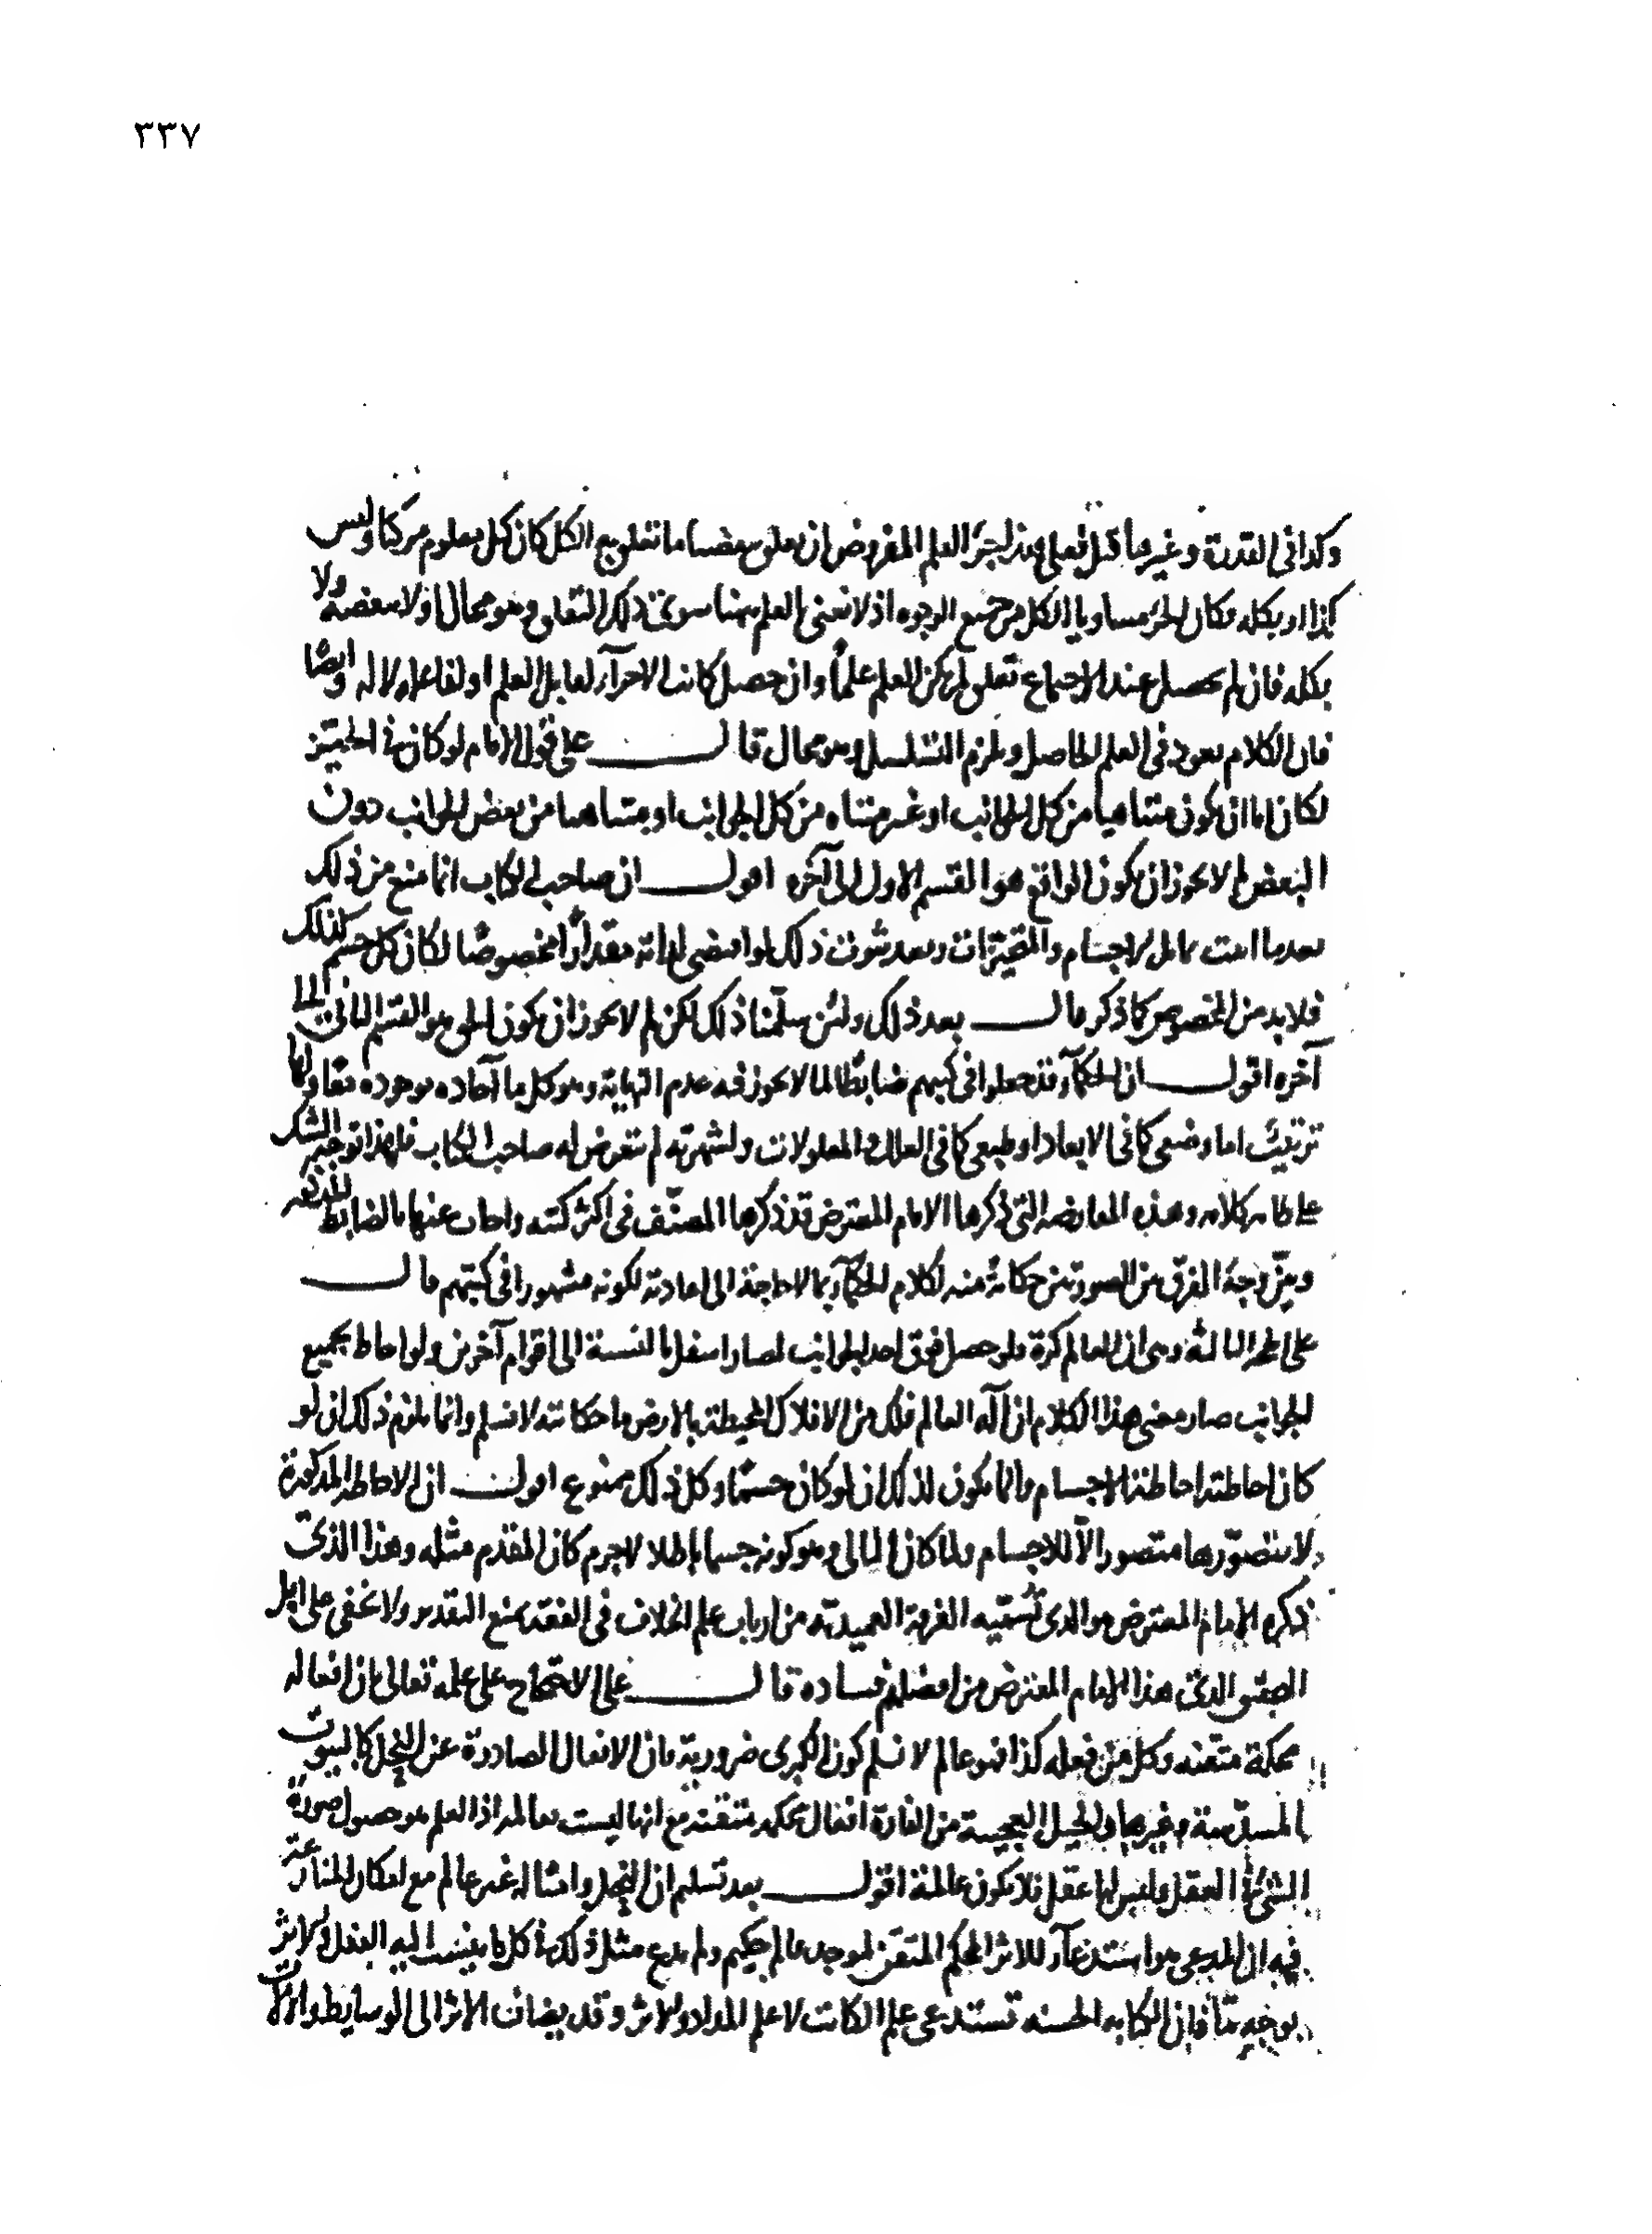 ٣٣٧
وكذا فى القدرة وغيرها قيل فعلى هذا لجزء العلم المفروض ان تعلق ببعض ما تعلق به الكل كان كل معلوم مركبا وليس
كذا او بكله فكان الجزء مساويا للكل من جميع الوجوه اذ لا نعنى بالعلم ههنا سوى ذلك التعلق وهو محال او لا ببعضه ولا
بكله فان لم يحصل عند الاجتماع تعلق لم يكن العلم علماً وان حصل كانت الاجزآء لقابل العلم او لفاعله لا له وايضًا
فان الكلام يعود فى العلم الحاصل ويلزم التسلسل وهو محال قال على قول الامام لو كان فى الحيّز
لكان اما ان يكون متناهيا من كل الجوانب او غير متناه من كل الجوانب او متناهيا من بعض الجوانب دون
البعض لم لا يجوز ان يكون الواقع هو القسم الاول الى آخره اقول ان صاحب الكتاب انما منع من ذلك
بعد ما اثبت تماثل الاجسام والمتحيّزات وبعد ثبوت ذلك لو اقتضى لذاته مقداراً مخصوصًا لكان كل جسم كذلك
فلا بد من المخصص كما ذكر قال بعد ذلك ولئن سلّمنا ذلك لكن لم لا يجوز ان يكون الحق هو القسم الثانى الى
آخره اقول ان الحكمآء قد جعلوا فى كتبهم ضابطا لما لا يجوز فيه عدم النهاية وهو كل ما آحاده موجوده معا ولها
ترتيب اما وضعى كما فى الابعاد او طبعى كما فى العلل والمعلولات ولشهرته لم يتعرض له صاحب الكتاب فلهذا توجّه الشك
على ظاهر كلامه وهذه المعارضه التى ذكرها الامام المعترض قد ذكرها المصنّف فى اكثر كتبه واجاب عنها بالضابط المذكور
وبيّن وجه الفرق بين الصورتين حكاية منه لكلام الحكمآء بما لا حاجة الى اعادته لكونه مشهورا فى كتبهم قال
على الحجة الثالثة وهى ان العالم كرة فلو حصل فوق احد الجوانب لصار اسفل بالنسبة الى اقوام آخرين ولو احاط بجميع
الجوانب صار معنى هذا الكلام ان آله العالم فلك من الافلاك المحيطة بالارض ما حكايته لا نسلم وانما يلزم ذلك ان لو
كان احاطته احاطة الاجسام وانما يكون لذلك ان لو كان جسمًا وكل ذلك ممنوع اقول ان الاحاطة المذكورة
لا نتصوّرها متصور الّا للاجسام ولما كان التالى وهو كونه جسما باطلا لا جرم كان المقدم مثله وهذا الذى
ذكره الامام المعترض هو الذى تسمّيه الفرقة العميدية من ارباب علم الخلاف فى الفقه بمنع التقدير ولا يخفى على اهل
التحقيق الذى هذا الامام المعترض من افضلهم فساده قال على الاحتجاج على علمه تعالى بان افعاله
محكمة متقنه وكل من فعله كذا فهو عالم لا نسلم كون الكبرى ضرورية فان الافعال الصادرة عن النحل كالبيوت
المسدّسة وغيرها والحيل العجيبة من الفارة افعال محكمه متقنة مع انها ليست بعالمه اذ العلم هو حصول صورة
الشىء فى العقل وليس لها عقل فلا يكون عالمة اقول بعد تسليم ان النحل وامثاله غير عالم مع امكان المنازعة
فيه ان المدعى هو استدعآء للاثر المحكم المتقن لموجد عالم حكيم ولم يدع مثل ذلك فى كل ما ينسب اليه الفعل والاثر
بوجه ما فان الكتابه الحسنه تستدعى علم الكاتب لا علم المداد والاثر وقد يضاف الاثر الى الوسايط والآلات